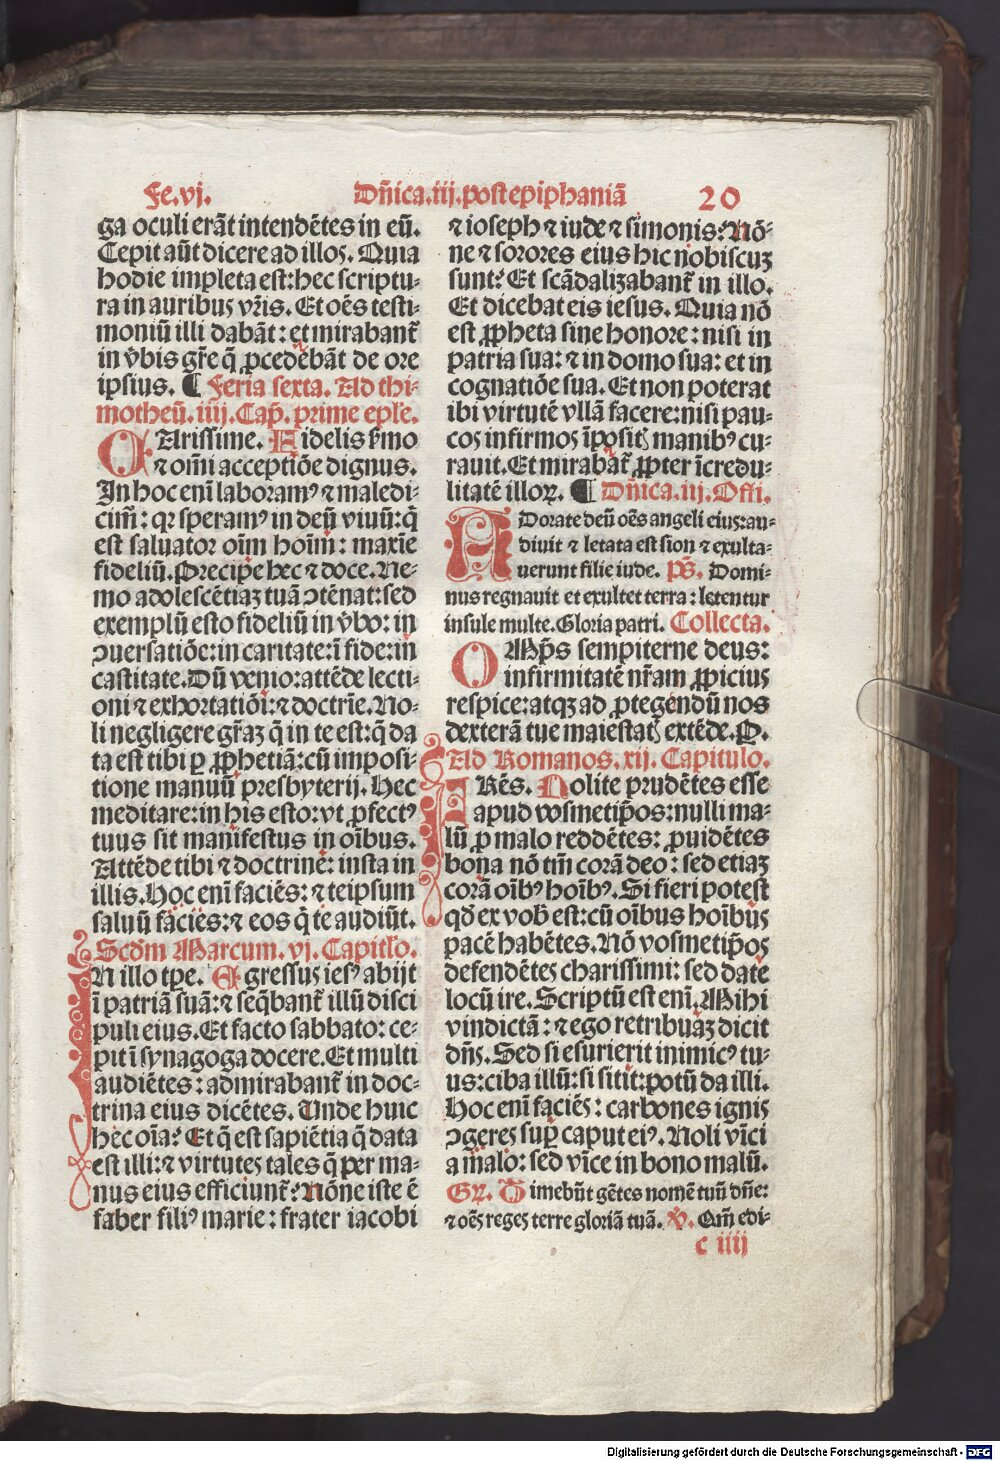 Fe.vj.
Dñica.iij.post epiphaniã
20
ga oculi erãt intendẽtes in eũ.
Cepit aũt dicere ad illos. Quia
hodie impleta est: hec scriptu-
ra in auribus vr̃is. Et oẽs testi-
moniũ illi dabãt: et mirabant̃
in v̾bis gr̃e q̃ ꝓcedebãt de ore
ipsius. ¶ Feria sexta. Ad thi-
motheũ. iiij. Cap̃. prime epl̃e.
CArissime. Fidelis s̾mo
⁊ oĩ acceptiõe dignus.
In hoc enĩ laboramꝰ ⁊ maledi-
cim̃: qꝛ speramꝰ in deũ viuũ: q̃
est saluator oĩm hoĩm: maxĩe
fideliũ. Precipe hec ⁊ doce. Ne-
mo adolescẽtiaꝫ tuã ↄtẽnat: sed
exemplũ esto fideliũ in v̾bo: in
ↄuersatiõe: in caritate: ĩ fide: in
castitate. Dũ venio: attẽde lecti-
oni ⁊ exhortatiõi: ⁊ doctrĩe. No-
li negligere gr̃aꝫ q̃ in te est: q̃ da
ta est tibi ꝑ ꝓphetiã: cũ imposi-
tione manuũ presbyterij. Hec
meditare: in his esto: vt ꝓfectꝰ
tuus sit manifestus in oĩbus.
Attẽde tibi ⁊ doctrine: insta in
illis. Hoc enĩ faciẽs: ⁊ teipsum
saluũ facies: ⁊ eos q̃ te audiũt.
Scd̃m Marcum. vj. Capitl̃o.
IN illo tp̃e. Egressus iesꝰ abijt
ĩ patriã suã: ⁊ seq̃bant̃ illũ disci
puli eius. Et facto sabbato: ce-
pit ĩ synagoga docere. Et multi
audiẽtes: admirabant̃ in doc-
trina eius dicẽtes. Unde huic
hec oĩa? Et q̃ est sapiẽtia q̃ data
est illi: ⁊ virtutes tales q̃ per ma-
nus eius efficiunt̃? Nõne iste ẽ
faber filiꝰ marie: frater iacobi
⁊ ioseph ⁊ iude ⁊ simonis? Nõ-
ne ⁊ sorores eius hic nobiscuꝫ
sunt? Et scãdalizabant̃ in illo.
Et dicebat eis iesus. Quia nõ
est ꝓpheta sine honore: nisi in
patria sua: ⁊ in domo sua: et in
cognatiõe sua. Et non poterat
ibi virtutẽ vllã facere: nisi pau-
cos infirmos ĩposit̃ manibꝰ cu-
rauit. Et mirabat̃ ꝓpter ĩcredu-
litatẽ illoꝝ. ¶ Dñica.iij. Offi.
ADorate deũ oẽs angeli eius: au-
diuit ⁊ letata est sion ⁊ exulta-
uerunt filie iude. ps̃. Domi-
nus regnauit et exultet terra: letentur
insule multe. Gloria patri. Collecta.
OMp̃s sempiterne deus:
infirmitatẽ nr̃am ꝓpicius
respice: atqꝫ ad ꝓtegendũ nos
dexterã tue maiestat̃ extẽde. P.
Ad Romanos. xij. Capitulo.
FRẽs. Nolite prudẽtes esse
apud vosmetip̃os: nulli ma-
lũ ꝓ malo reddẽtes: ꝓuidẽtes
bona nõ tm̃ corã deo: sed etiaꝫ
corã oĩbꝰ hoĩbꝰ. Si fieri potest
qd̃ ex vob̃ est: cũ oĩbus hoĩbus
pacẽ habẽtes. Nõ vosmetip̃os
defendẽtes charissimi: sed date
locũ ire. Scriptũ est enĩ. Mihi
vindictã: ⁊ ego retribuaꝫ dicit
dñs. Sed si esurierit inimicꝰ tu-
us: ciba illũ: si sitit: potũ da illi.
Hoc enĩ faciẽs: carbones ignis
ↄgeres sup̃ caput eiꝰ. Noli vĩci
a malo: sed vĩce in bono malũ.
Gꝛ. Timebũt gẽtes nomẽ tuũ dñe:
⁊ oẽs reges terre gloriã tuã. v̾. Qm̃ edi-
c iiij
Digitalisierung gefördert durch die Deutsche Forschungsgemeinschaft - DFG